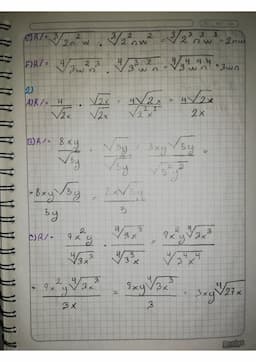 E) R/= ∛2n²w · ∛2²nw² = ∛2³n³w³ = 2nw
F) R/= ∜3wn²³ · ∜3³w²n = ∜3⁴w⁴n⁴ = 3wn
2)
A) R/= 4/√2x · √2x/√2x = 4√2x/√2²x² = 4√2x/2x
B) R/= 8xy/√5y · √5y/√5y = 8xy√5y/√5²y² =
= 8xy√5y/5y = 8x√5y/5
C) R/= 9x²y/∜3x³ · ∜3x³/∜3³x = 9x²y∜3x³/∜3⁴x⁴
= 9x²y∜3x³/3x = 9xy∜3x³/3 = 3xy∜27x